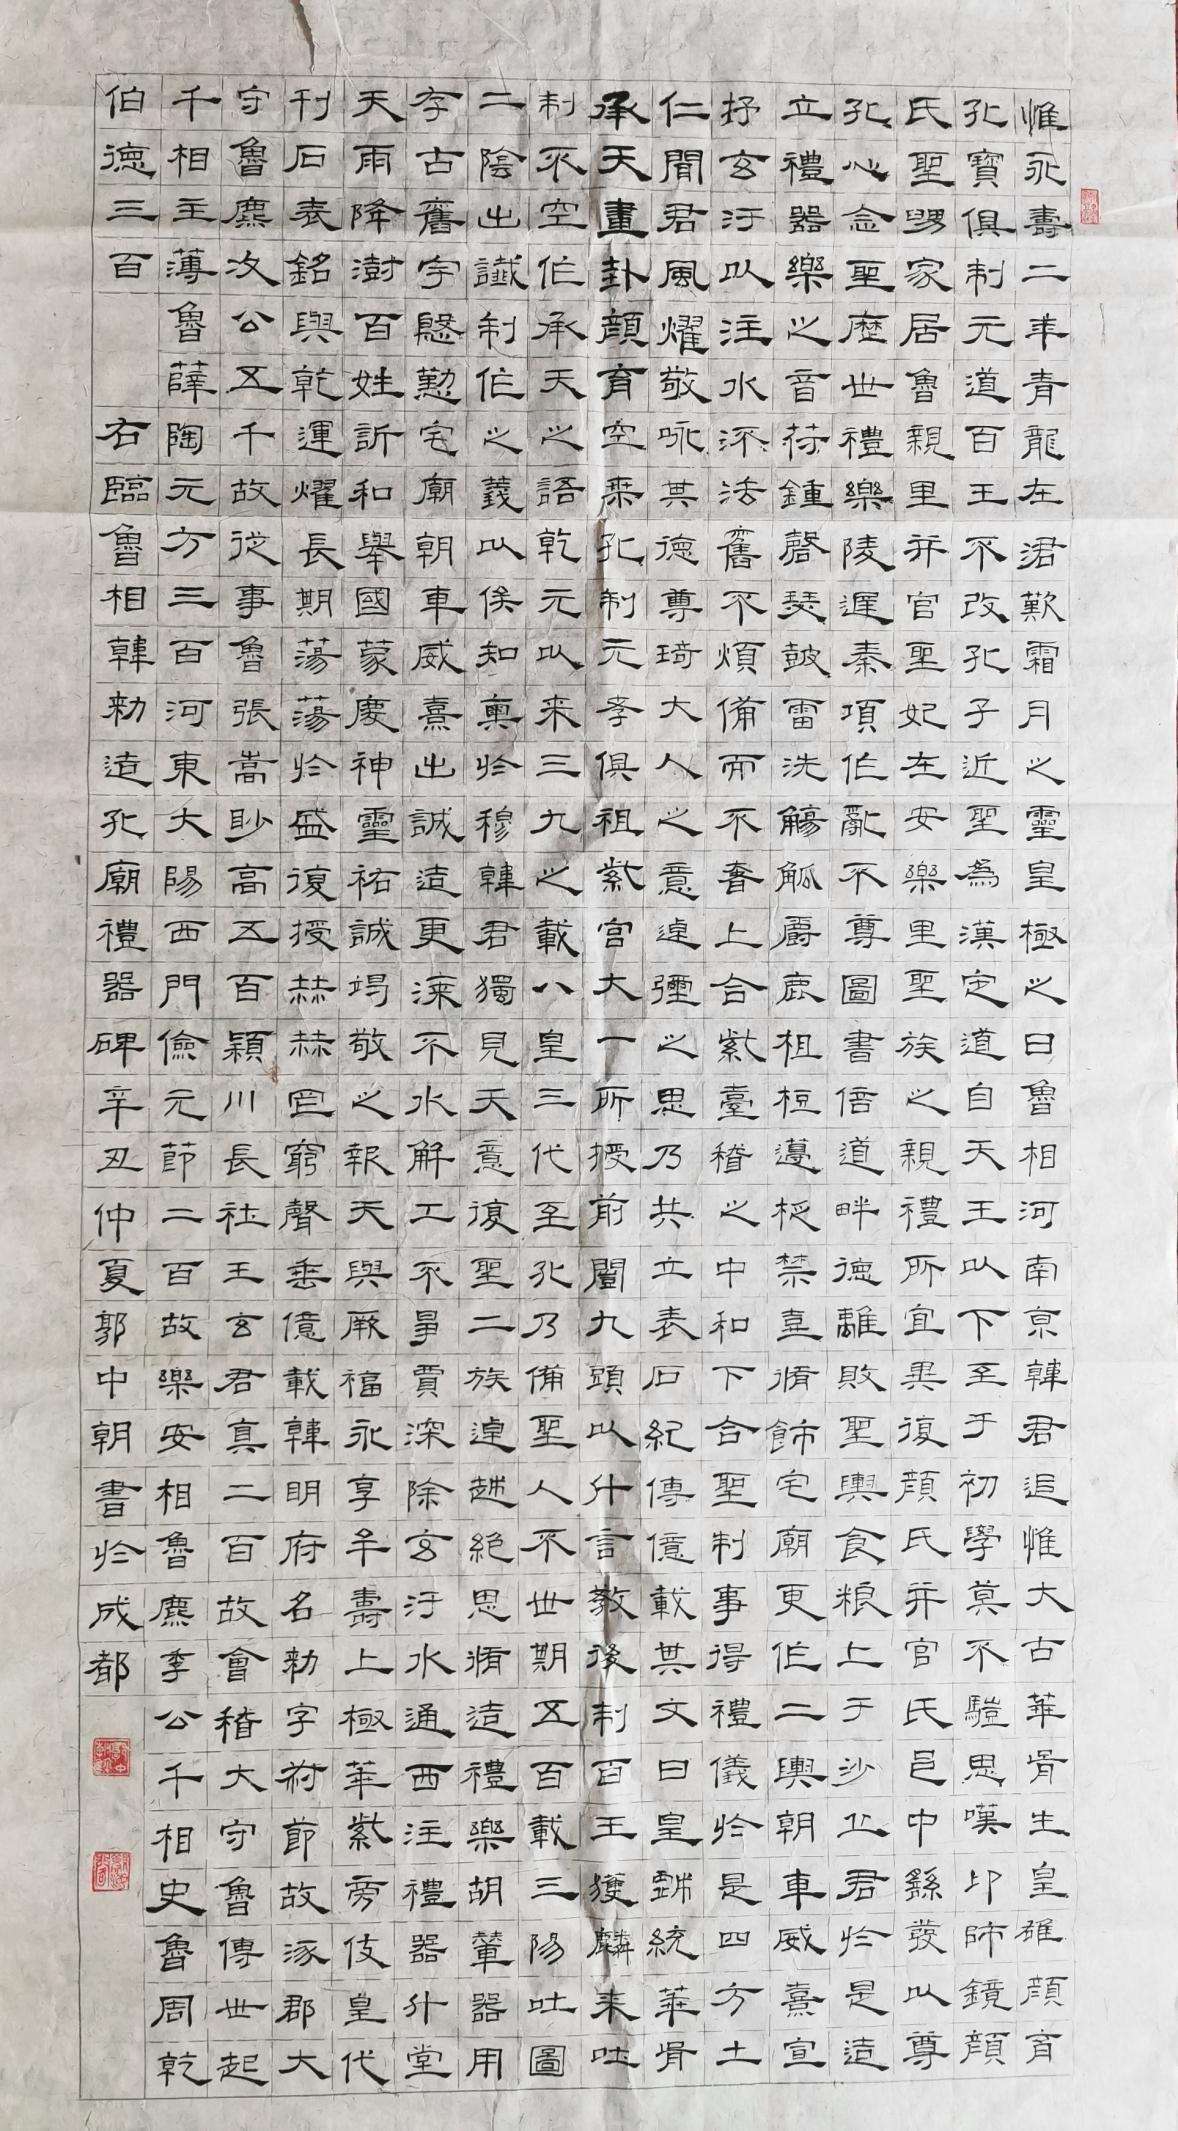 惟永壽二年青龍在涒歎霜月之靈皇極之日魯相河南京韓君追惟大古華胥生皇雄顏育
孔寶俱制元道百王不改孔子近聖為漢定道自天王以下至于初學莫不驥思嘆卬師鏡顏
氏聖舅家居魯親里并官聖妃在安樂里聖族之親禮所宜異復顏氏并官氏邑中繇發以尊
孔心念聖歷世禮樂陵遲秦項作亂不尊圖書倍道畔德離敗聖輿食粮上于沙丘君於是造
立禮器樂之音符鍾磬瑟鼓雷洗觴觚爵鹿柤梪籩柉禁壺脩飾宅廟更作二輿朝車威熹宣
抒玄汙以注水流法舊不煩備而不奢上合紫臺稽之中和下合聖制事得禮儀於是四方土
仁聞君風燿敬咏其德尊琦大人之意逴彌之思乃共立表石紀傳億載其文曰皇戲統華胥
承天畫卦顏育空桑孔制元孝俱祖紫宮大一所授前闓九頭以升言教後制百王獲麟來吐
制不空作承天之語乾元以來三九之載八皇三代至孔乃備聖人不世期五百載三陽吐圖
二陰出讖制作之義以俟知奧於穆韓君獨見天意復聖二族逴越絕思脩造禮樂胡輦器用
存古舊宇慇懃宅廟朝車威熹出誠造更漆不水解工不爭賈深除玄汙水通西注禮器升堂
天雨降澍百姓訢和舉國蒙慶神靈祐誠竭敬之報天與厥福永享牟壽上極華紫旁伎皇代
刊石表銘與乾運燿長期蕩蕩於盛復授赫赫罔窮聲垂億載韓明府名勑字叔節故涿郡大
守魯麃次公五千故從事魯張嵩眇高五百潁川長社王玄君真二百故會稽大守魯傅世起
千相主薄魯薛陶元方三百河東大陽西門儉元節二百故樂安相魯麃季公千相史魯周乾
伯德三百 右臨魯相韓勑造孔廟禮器碑辛丑仲夏郭中朝書於成都